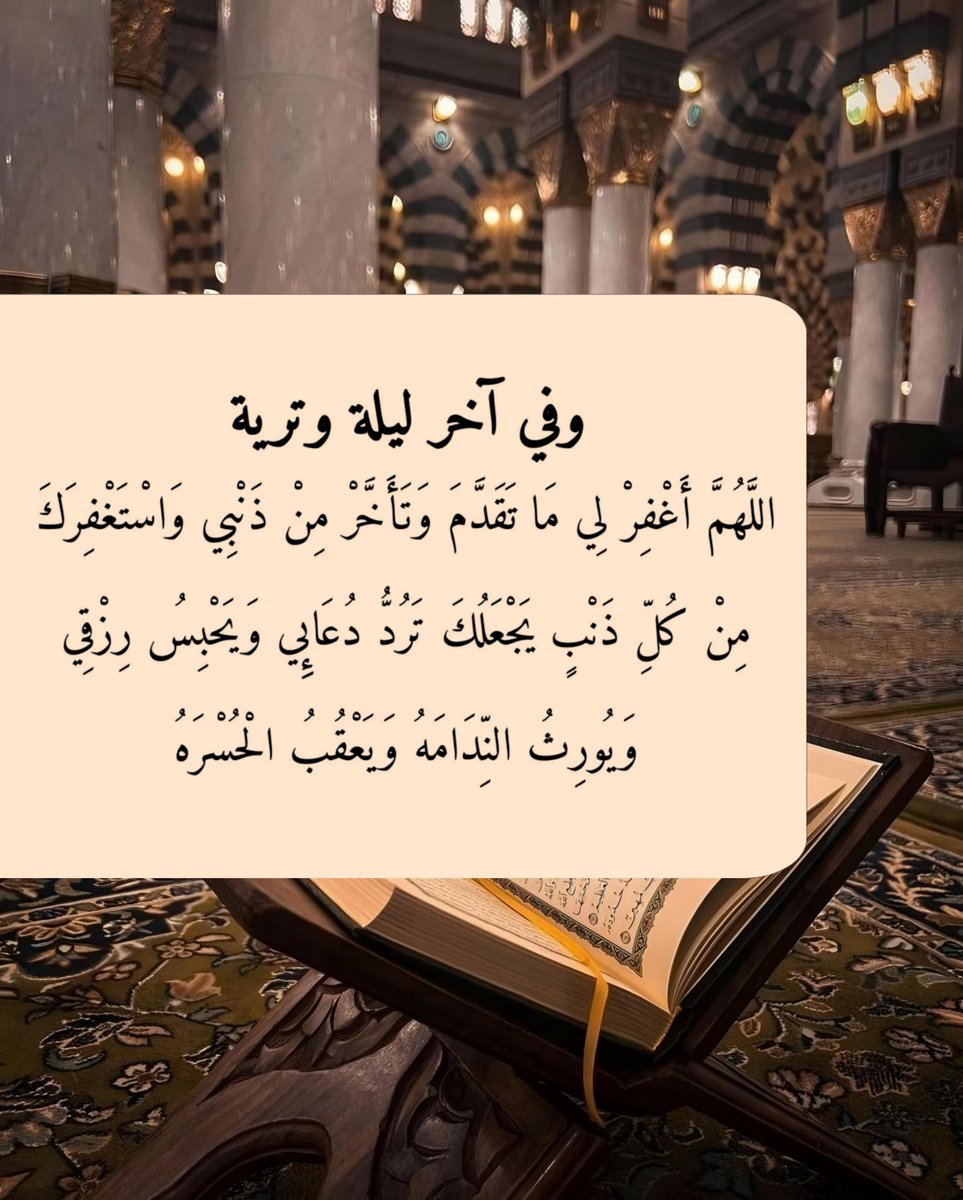 وفي آخر ليلة وترية
اللَّهُمَّ أَغْفِرْ لِي مَا تَقَدَّمَ وَتَأَخَّرْ مِنْ ذَنْبِي وَاسْتَغْفِرَكَ
مِنْ كُلِّ ذَنْبٍ يَجْعَلُكَ تَرُدُّ دُعَايِي وَيَحْبِسُ رِزْقِي
وَيُورِثُ النِّدَامَهُ وَيَعْقُبُ الْحُسْرَهُ